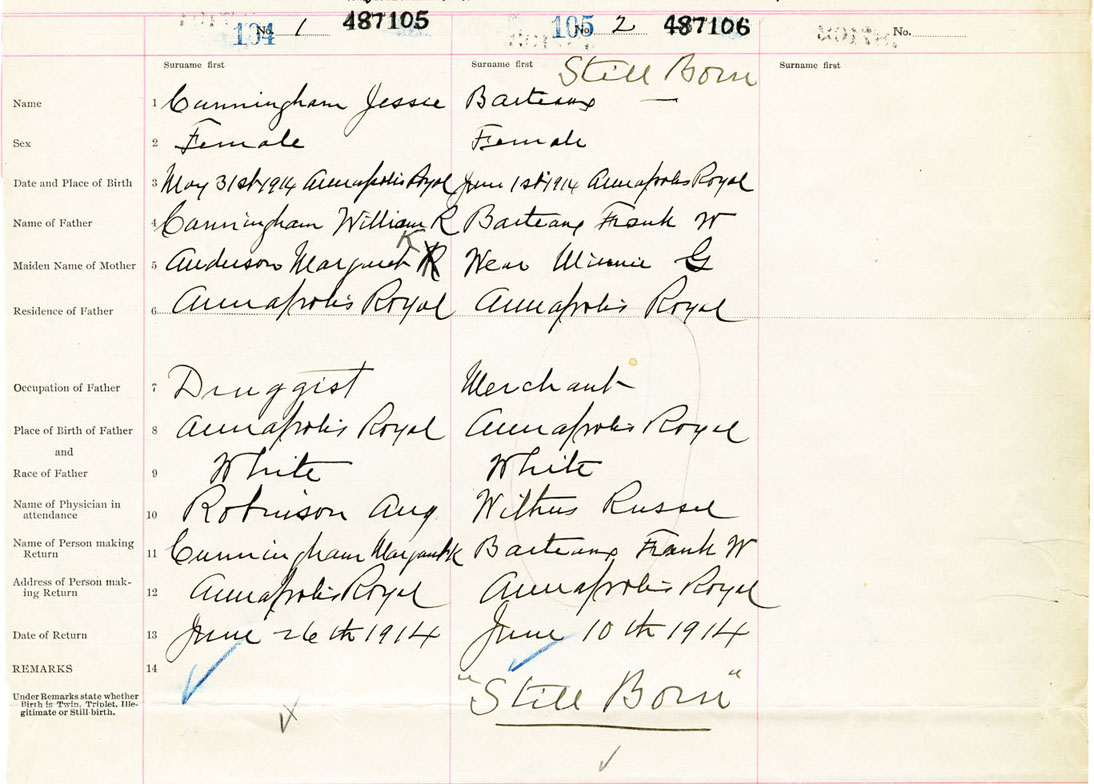 104 No. 1 487105 105 No. 2 487106 No.
Surname first Surname first Still Born Surname first
Name 1 Cunningham Jessie Barteaux —
Sex 2 Female Female
Date and Place of Birth 3 May 31st 1914 Annapolis Royal June 1st 1914 Annapolis Royal
Name of Father 4 Cunningham William R Barteaux Frank W
Maiden Name of Mother 5 Anderson Margaret K Wear Minnie G
Residence of Father 6 Annapolis Royal Annapolis Royal
Occupation of Father 7 Druggist Merchant
Place of Birth of Father 8 Annapolis Royal Annapolis Royal
and
Race of Father 9 White White
Name of Physician in
attendance 10 Robinson Aug Russel
Name of Person making
Return 11 Cunningham Margaret K Barteaux Frank W
Address of Person mak-
ing Return 12 Annapolis Royal Annapolis Royal
Date of Return 13 June 26th 1914 June 10th 1914
REMARKS 14
Under Remarks state whether
Birth is Twin, Triplet, Ille-
gitimate or Still birth.
"Still Born"